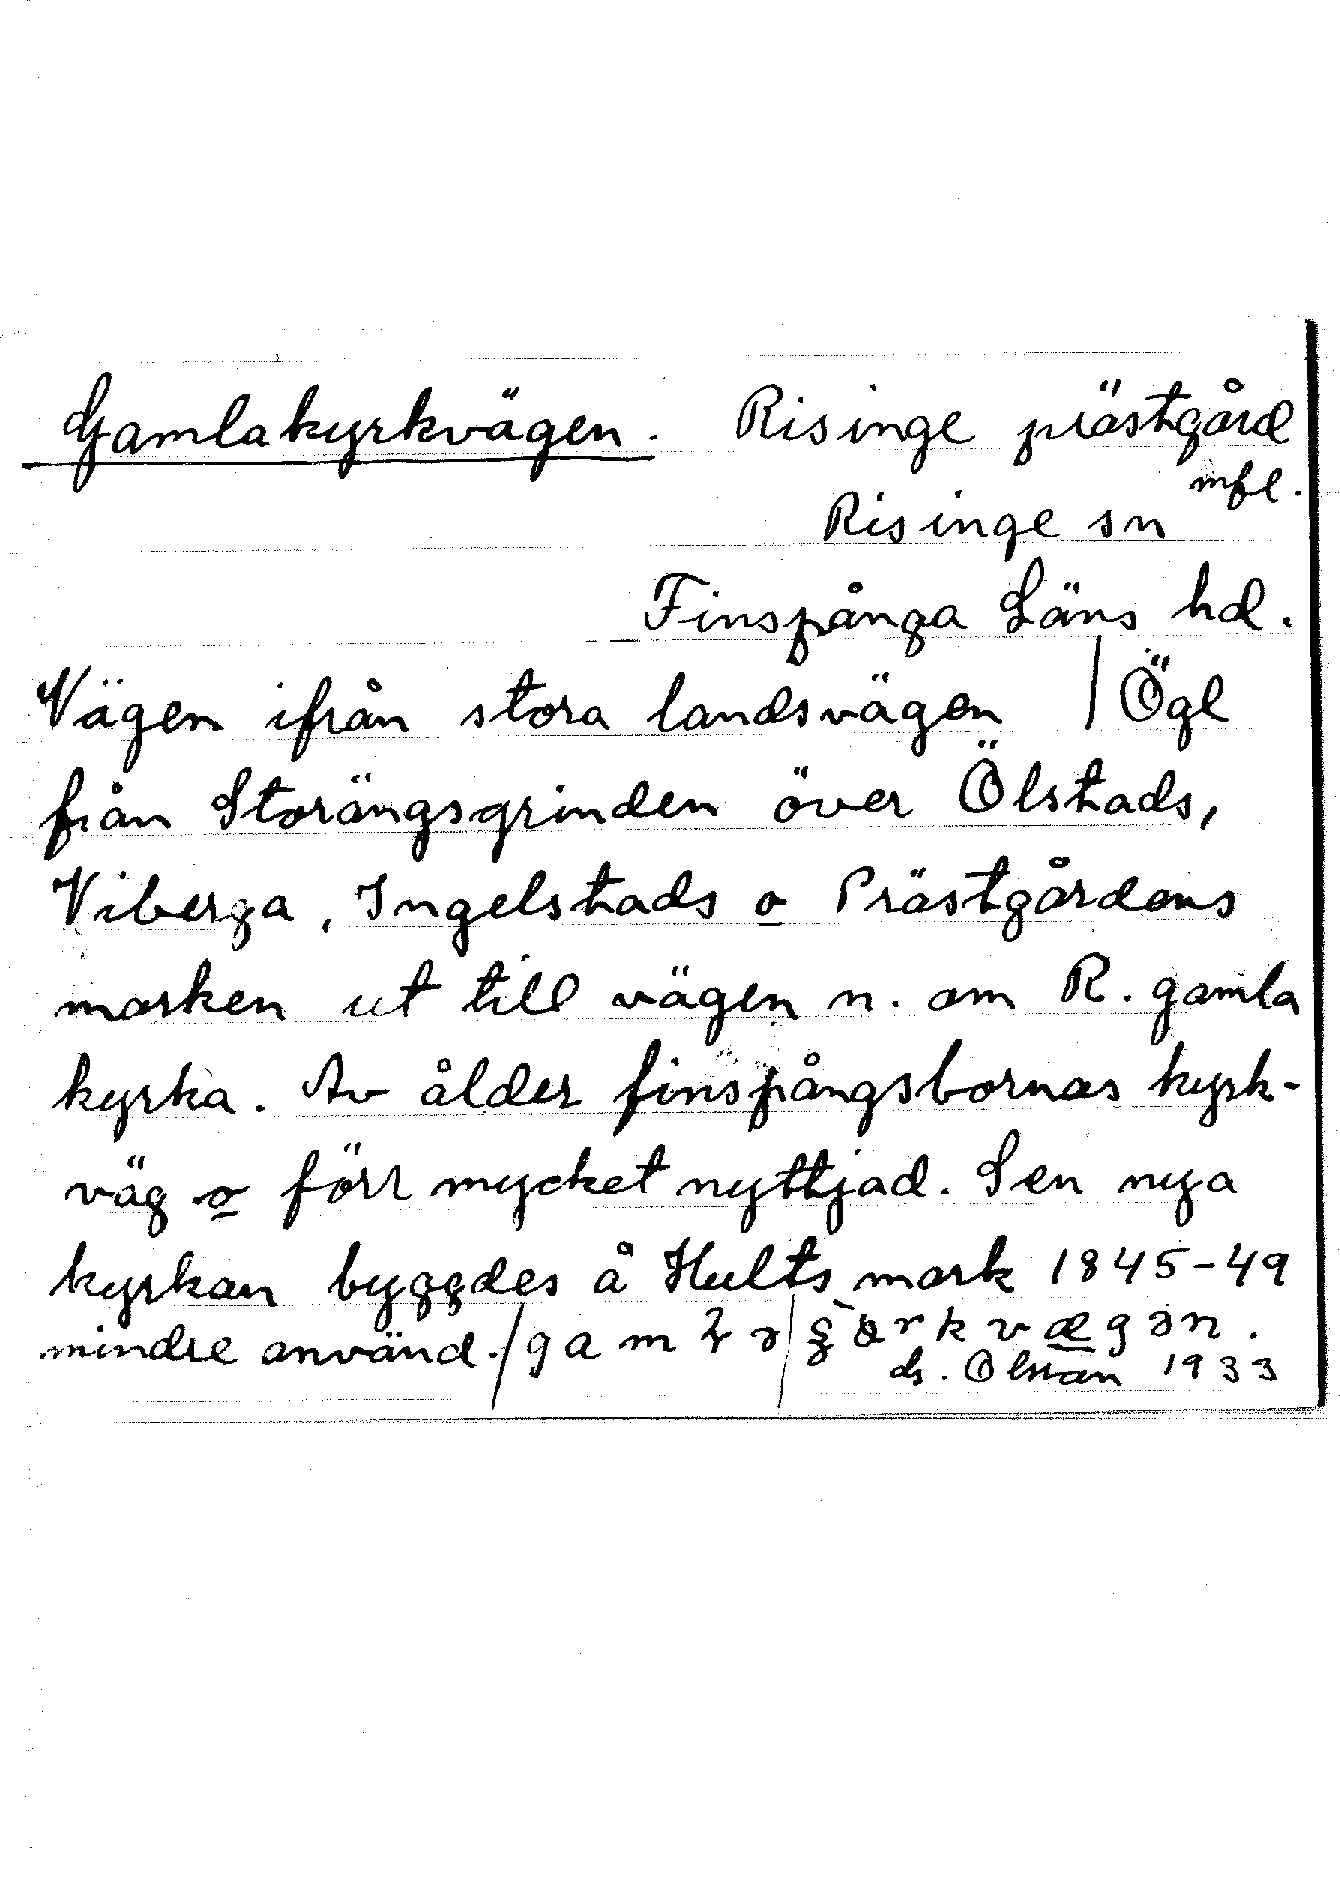 Gamlakyrkvägen. Risinge prästgård
mfl.
Risinge sn
Finspånga Läns hd.
Vägen ifrån stora landsvägen / Ögl
från Storängsgrinden över Ölstads,
Viberga, Ingelstads o Prästgårdens
marken ut till vägen n. om R. gamla
kyrka. Av ålder finspångsbornas kyrk-
väg o förr mycket nyttjad. Sen nya
kyrkan byggdes å Hults mark 1845-49
mindre använd. /
ds. 1933